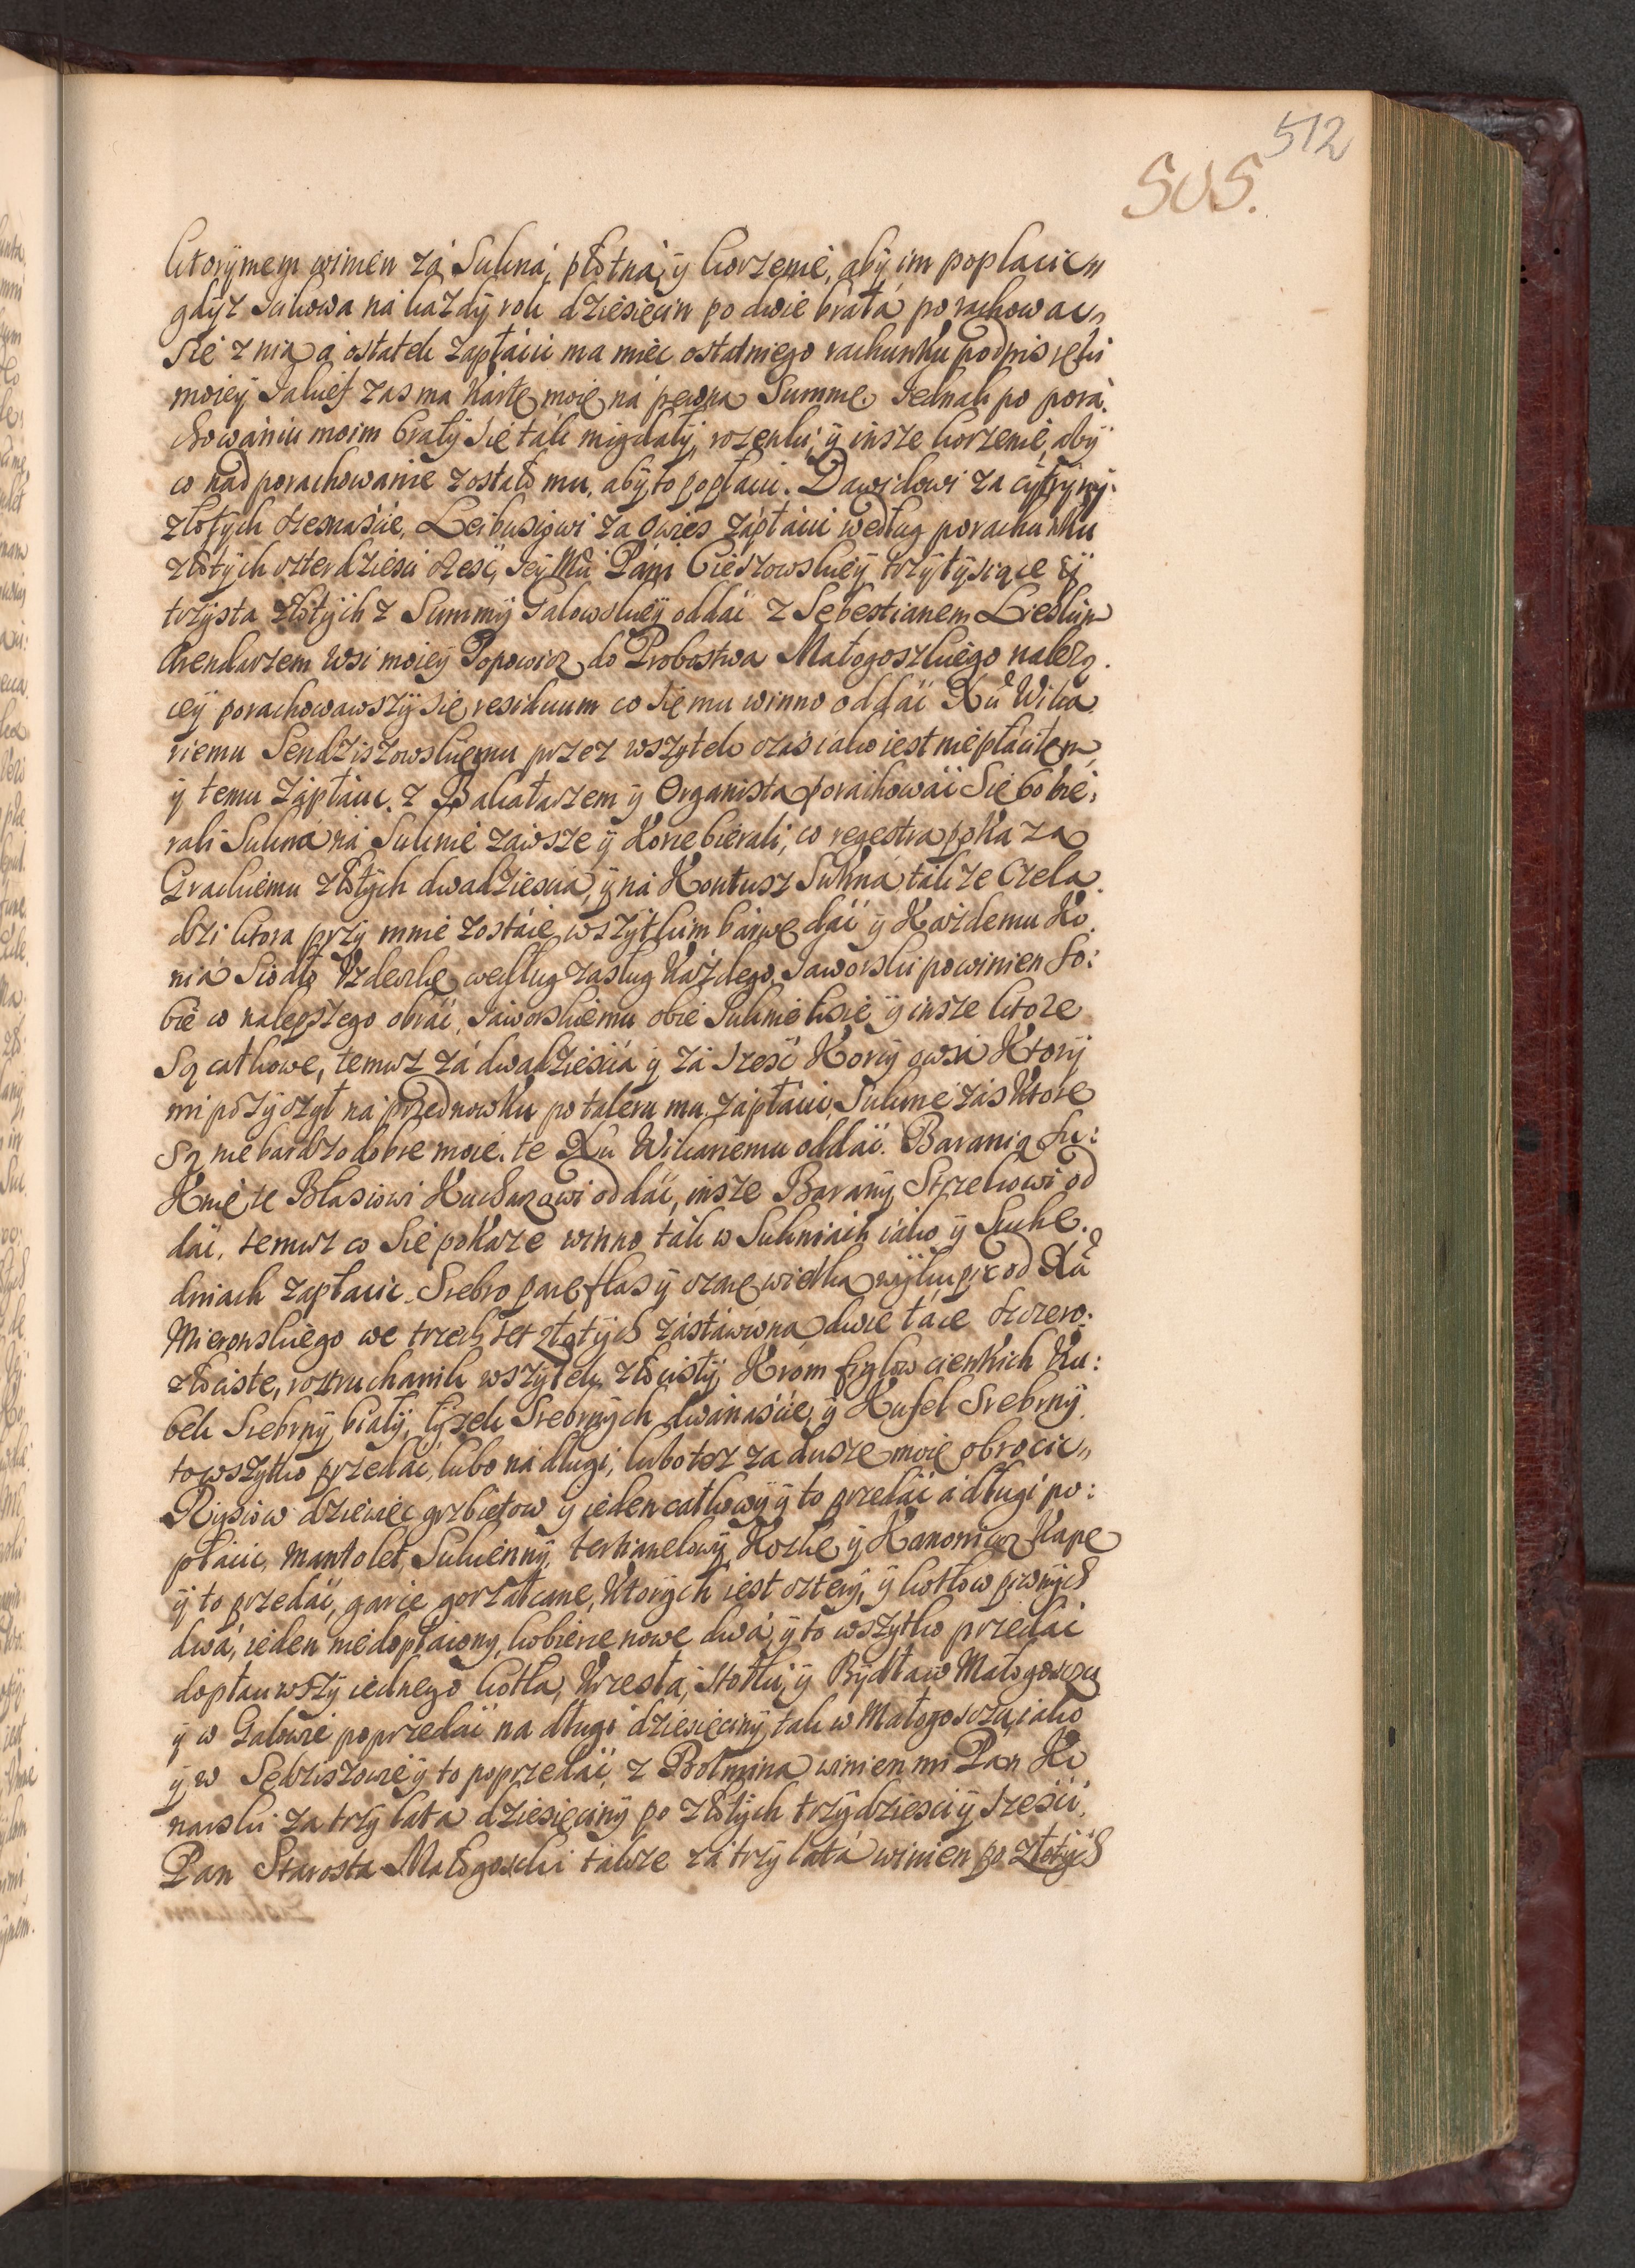 512
505.
ktorymem winien za Sukna, płotna, y korzenie, aby im poplacic
gdyz Jakowa na kazdy rok dziesięcin po dwie brała porachowac
Się z nią a ostatek zapłacic ma miec ostatniego rachunku podpis ręki
moiey Jakież zas ma kartę moię na pewną Summę. Jednak po pora:
chowaniu moim brały się tak migdały, rozenki, y insze korzenie, aby
co nad porachowanie zostało mu, aby to popłacic. Dawidowi za cytryny
złotych osmnascie, Leibusiowi za owies zapłacic według porachunku
złotych czterdziesci szesc, Jey Mci Pani Cieszowskiey trzy tysiące y
trzysta złotych z Summy Jałowskiey oddac z Sebestianem
Arendarzem wsi moiey Popowicz do Probostwa Małogoszkiego należą:
cey porachowawszy się residuum co się mu winno oddac Xu Wika
riemu Sendziszowskiemu przez wszytek czas iako iest niepłaciłem,
y temu zapłacic. z Bakałarzem y Organistą porachowac Się bo bie:
rali Suknia na Suknie zawsze y Korce bierali, co regestra pokażą
Grackiemu złotych dwadziescia, y na Kontusz Sukna, także Czela:
dzi ktora przy mnie zostaie wszytkim barwę dac y Kazdemu Ko:
nia Siodło Uzdeczkę według zasług Kazdego, Jaworski powinien So:
bie co nalepszego obrac, Jaworskiemu obie Suknie lisie y insze ktore
Są całkowe, temuz za dwadziescia y za Szesc Korcy owsa Ktory
mi pozyczył na przednowku po taleru ma zapłacic, Suknie zas Ktore
Są nie bardzo dobre moie. te Xu Wikariemu oddac. Baranią Su:
Knię te Błasiowi Kucharzowi oddac, insze Barany Strzelcowi od
dac, temuz co Się pokaze winno tak w Sukniach iako y Suche:
dniach zapłacic. Srebro parę flasz y czarę wielką wykupic od Xa
Mieronskiego we trzech set złotych zastawiona dwie tace Szczero:
złociste, roztruchanik wszytek złocisty Krom frezlow cienkich Ku:
bek Srebrny biały, łyzek Srebrnych dwanascie, y Kufel Srebrny
to wszytko przedac, lubo na długi, lubo tez za duszę moię obrocic
Rysiow dziewięc grzbietow y ieden całkowy y to przedac a długi po:
płacic, mantolet Sukienny, tercianelowy Koszkę y Kanoniczą Kapę
y to przedac, garce gorzałczane, Ktorych iest cztery, y kotłow piwnych
dwa, ieden niedopłacony, kobierce nowe dwa, y to wszytko przedac
dopłaciwszy iednego kotła, Krzesła, Stołki, y Bydła w Małogoszczu
y w Galowie poprzedac na długi dziesięciny, tak w Małogoszczu, iako
y w Sędziszowie y to poprzedac, z Bolmina winien mi Pan Ko
narski za trzy lata dziesięciny po złotych trzydziesci y Szesc,
Pan Starosta Małogoski takze za trzy lata winien po złotych